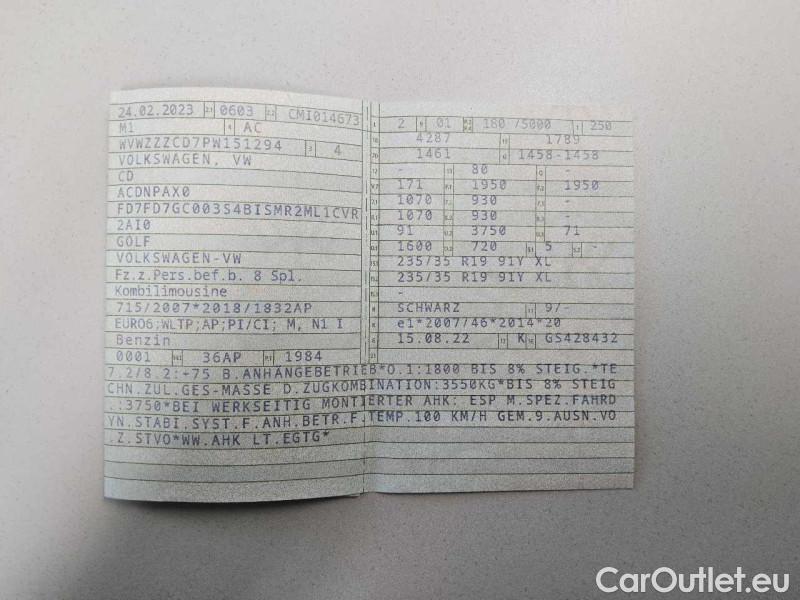 24.02.2023 2.1 0603 2.2 CMI014673
M1 4 AC
WVWZZZCD7PW151294 3 4
VOLKSWAGEN, VW
CD
ACDNPAX0
FD7FD7GC003S4BISMR2ML1CVR
2AI0
GOLF
VOLKSWAGEN-VW
Fz.z.Pers.bef.b. 8 Spl.
Kombilimousine
715/2007*2018/1832AP
EURO6;WLTP;AP;PI/CI; M, N1 I
Benzin
0001 36AP 1984
2 9 01 180 /5000 T 250
4287 1789
1461 1458-1458
- 80 -
171 1950 1950
1070 930 -
1070 930 -
91 3750 71
1600 720 5 -
235/35 R19 91Y XL
235/35 R19 91Y XL
-
SCHWARZ 11 9/-
e1*2007/46*2014*20
15.08.22 K GS428432
7.2/8.2:+75 B.ANHÄNGEBETRIEB*O.1:1800 BIS 8% STEIG.*TE
CHN.ZUL.GES-MASSE D.ZUGKOMBINATION:3550KG*BIS 8% STEIG
.:3750*BEI WERKSEITIG MONTIERTER AHK: ESP M.SPEZ.FAHRD
YN.STABI.SYST.F.ANH.BETR.F.TEMP.100 KM/H GEM.9.AUSN.VO
.Z.STVO*WW.AHK LT.EGTG*
CarOutlet.eu